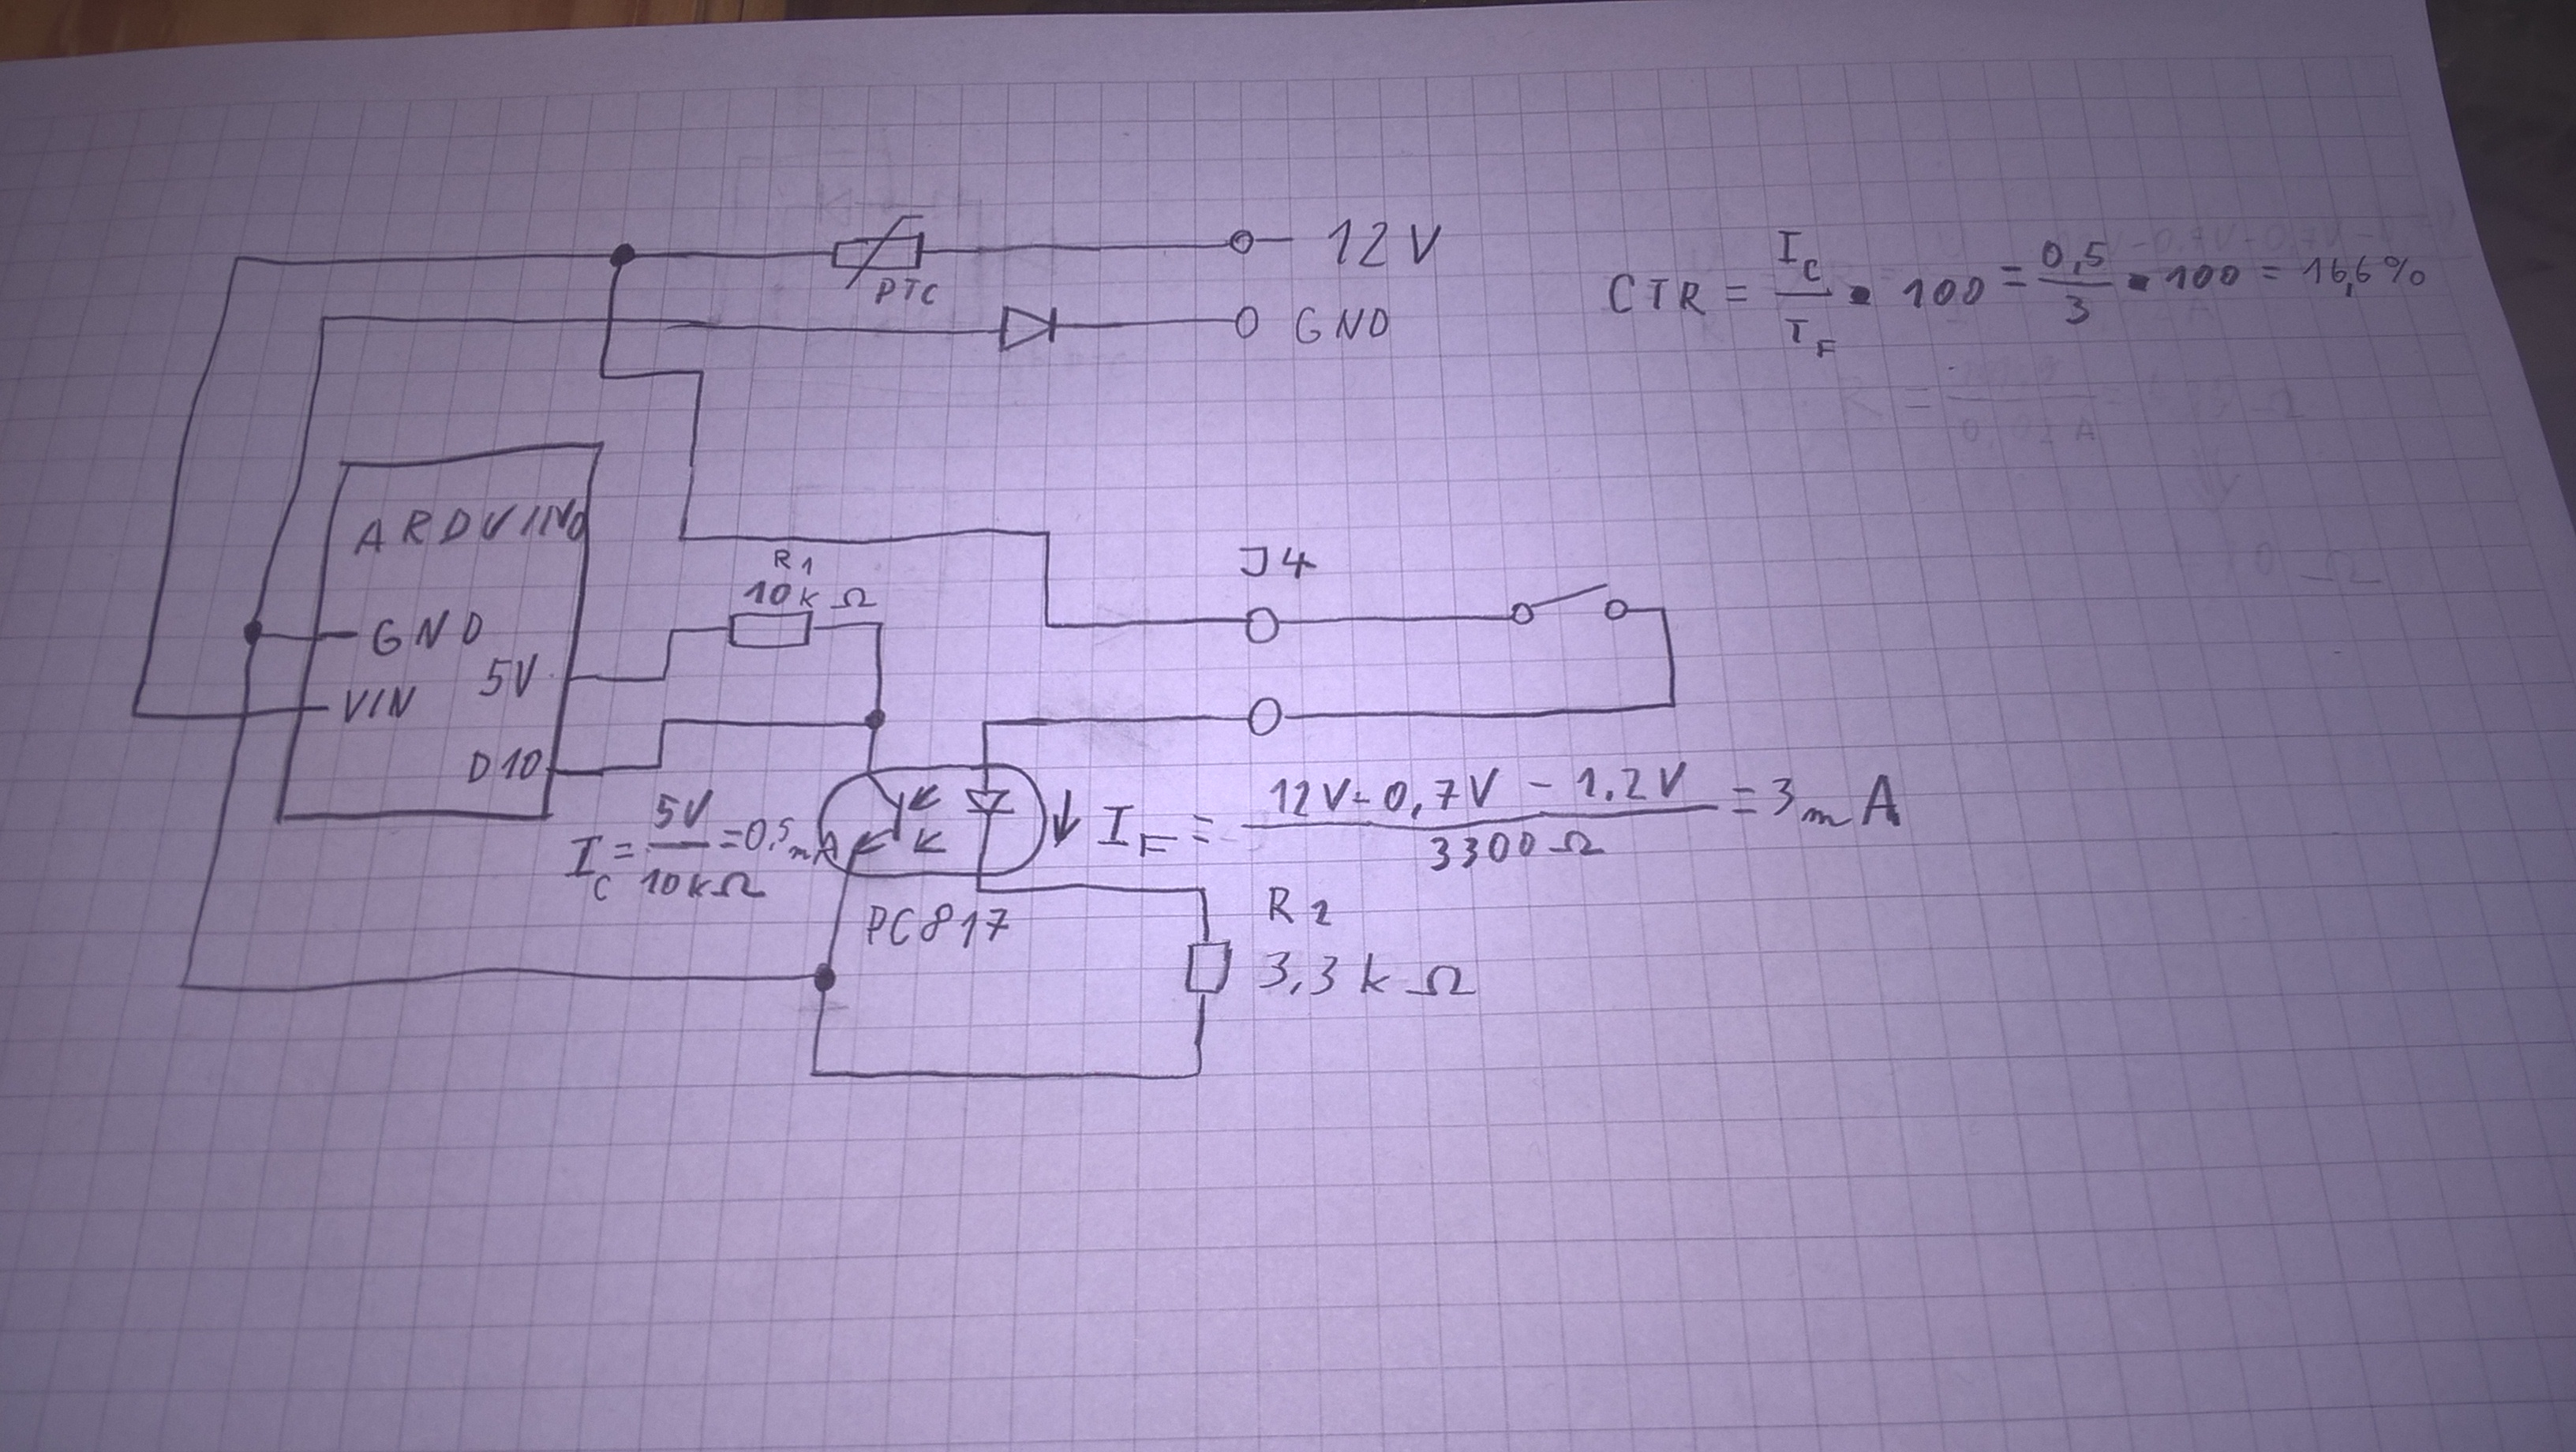 12V
PTC
GND
CTR = I_C / I_F · 100 = 0,5 / 3 · 100 = 16,6%
ARDUINO
GND
5V
VIN
D10
R1
10kΩ
J4
I_C = 5V / 10kΩ = 0,5mA
I_F = 12V - 0,7V - 1.2V / 3300Ω = 3mA
PC817
R2
3,3kΩ